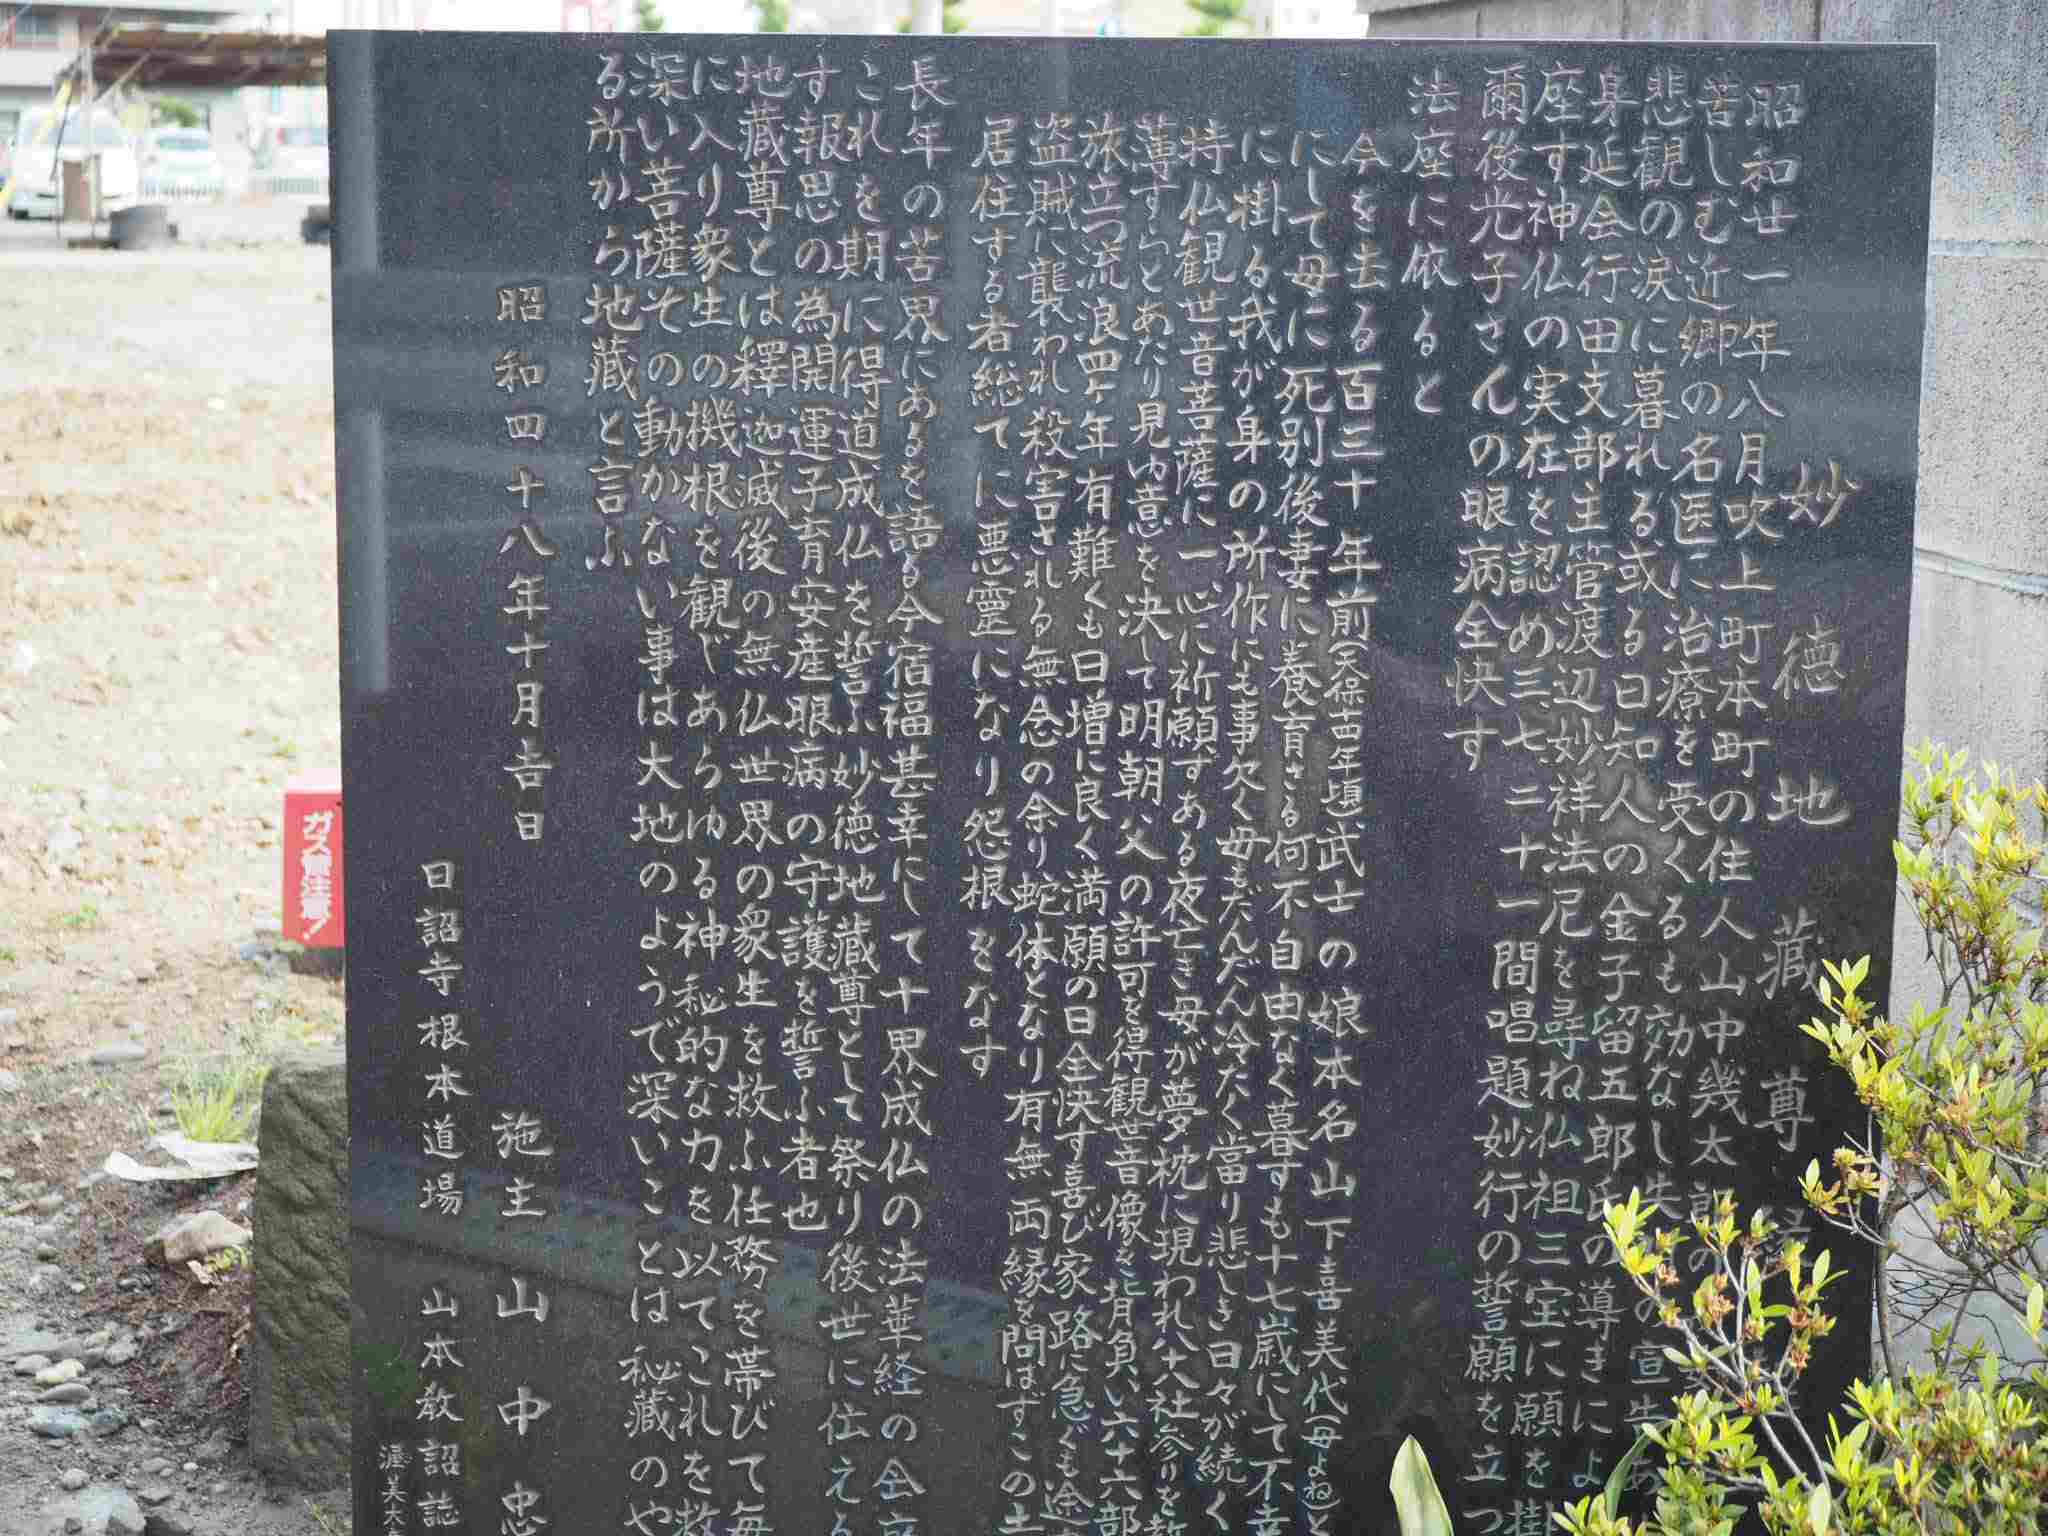 妙徳地蔵尊
昭和廿一年八月吹上町本町の住人山中幾太郎の
苦しむ近郷の名医に治療を受くるも効なし失の宣告
悲観の涙に暮れる或る日知人の金子留五郎氏の導きによ
身延会行田支部主管渡辺妙祥法尼を尋ね仏祖三宝に願を掛
座す神仏の実在を認め三、七、二十一間唱題妙行の誓願を立つ
爾後光子さんの眼病全快す
法座に依ると
今を去る百三十年前(天保十四年頃)武士の娘本名山下喜美代(母よね)と
にして母に死別後妻に養育さる何不自由なく暮すも十七歳にして不幸
に掛る我が身の所作にも事欠く母もだんだん冷たく當り悲しき日々が続く
持仏観世音菩薩に一心に祈願すある夜亡き母が夢枕に現われ八十八社参りを
薄すらとあたり見ゆ意を決して明朝父の許可を得観世音像を背負い六十六部
旅立つ流浪四ヶ年有難くも日増に良く満願の日全快す喜び家路に急ぐも途
盗賊に襲われ殺害される無念の余り蛇体となり有無両縁を問はずこの土
居住する者総てに悪霊になり怨根をなす
長年の苦界にあるを語る今宿福甚幸にして十界成仏の法華経の会
これを期に得道成仏を誓ふ妙徳地蔵尊として祭り後世に伝える
す報恩の為開運子育安産眼病の守護を誓ふ者也
地蔵尊とは釋迦滅後の無仏世界の衆生を救ふ任務を帯びて毎
に入り衆生の機根を観じあらゆる神秘的な力を以てこれを救
深い菩薩その動かない事は大地のようで深いことは秘蔵のや
る所から地蔵と言ふ
昭和四十八年十月吉日
施主 山中忠
日詔寺根本道場 山本教詔誌
渥美大
ガス管注意!